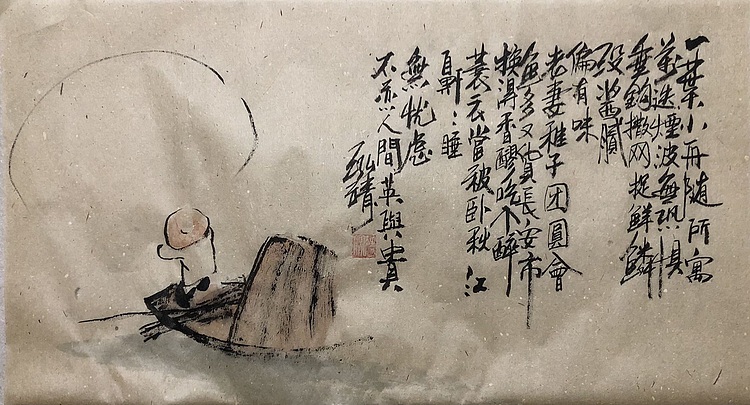 一葉小舟随所寓
萬迭煙波無恐惧
垂鈎撒网捉鮮鱗
没醬膩
偏有味
老妻稚子团圓會
魚多又貨長安市
换得香醪吃个醉
蓑衣當被卧秋江
鼾〻睡
無忧慮
不恋人間荣與貴